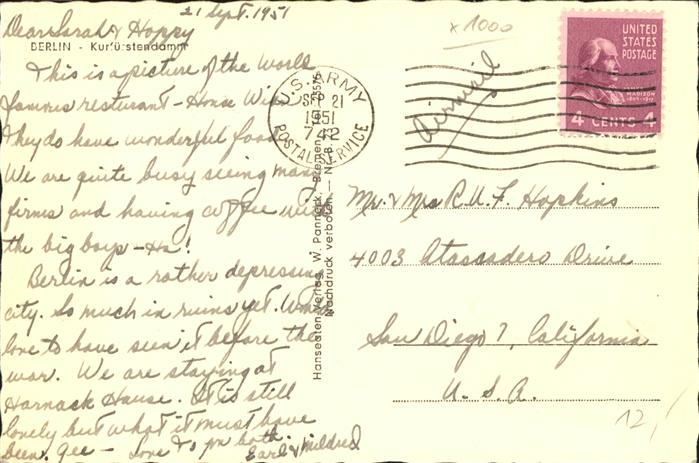 21 Sept. 1951
Dear Sarah & Hoppy
BERLIN - Kurfürstendamm
This is a picture of the world
famous resturant - House Wien
They do have wonderful food
We are quite busy seeing many
firms and having coffee with
the big boys - Ha!
Berlin is a rather depressing
city. So much in ruins yet. Would
love to have seen it before the
war. We are staying at
Harnack House. It is still
lovely but what it must have
been. Gee - Love to you both
Earl & Mildred
Hanseaten-Verlag W. Pannock, Bremen
Nachdruck verboten
U.S. ARMY
SEP 21
1951
742
POSTAL SERVICE
x 1000
Airmail
UNITED
STATES
POSTAGE
JAMES
MADISON
4 CENTS 4
Mr. & Mrs R.U.F. Hopkins
4003 Atascadero Drive
San Diego 7, California
U.S.A.
12,/